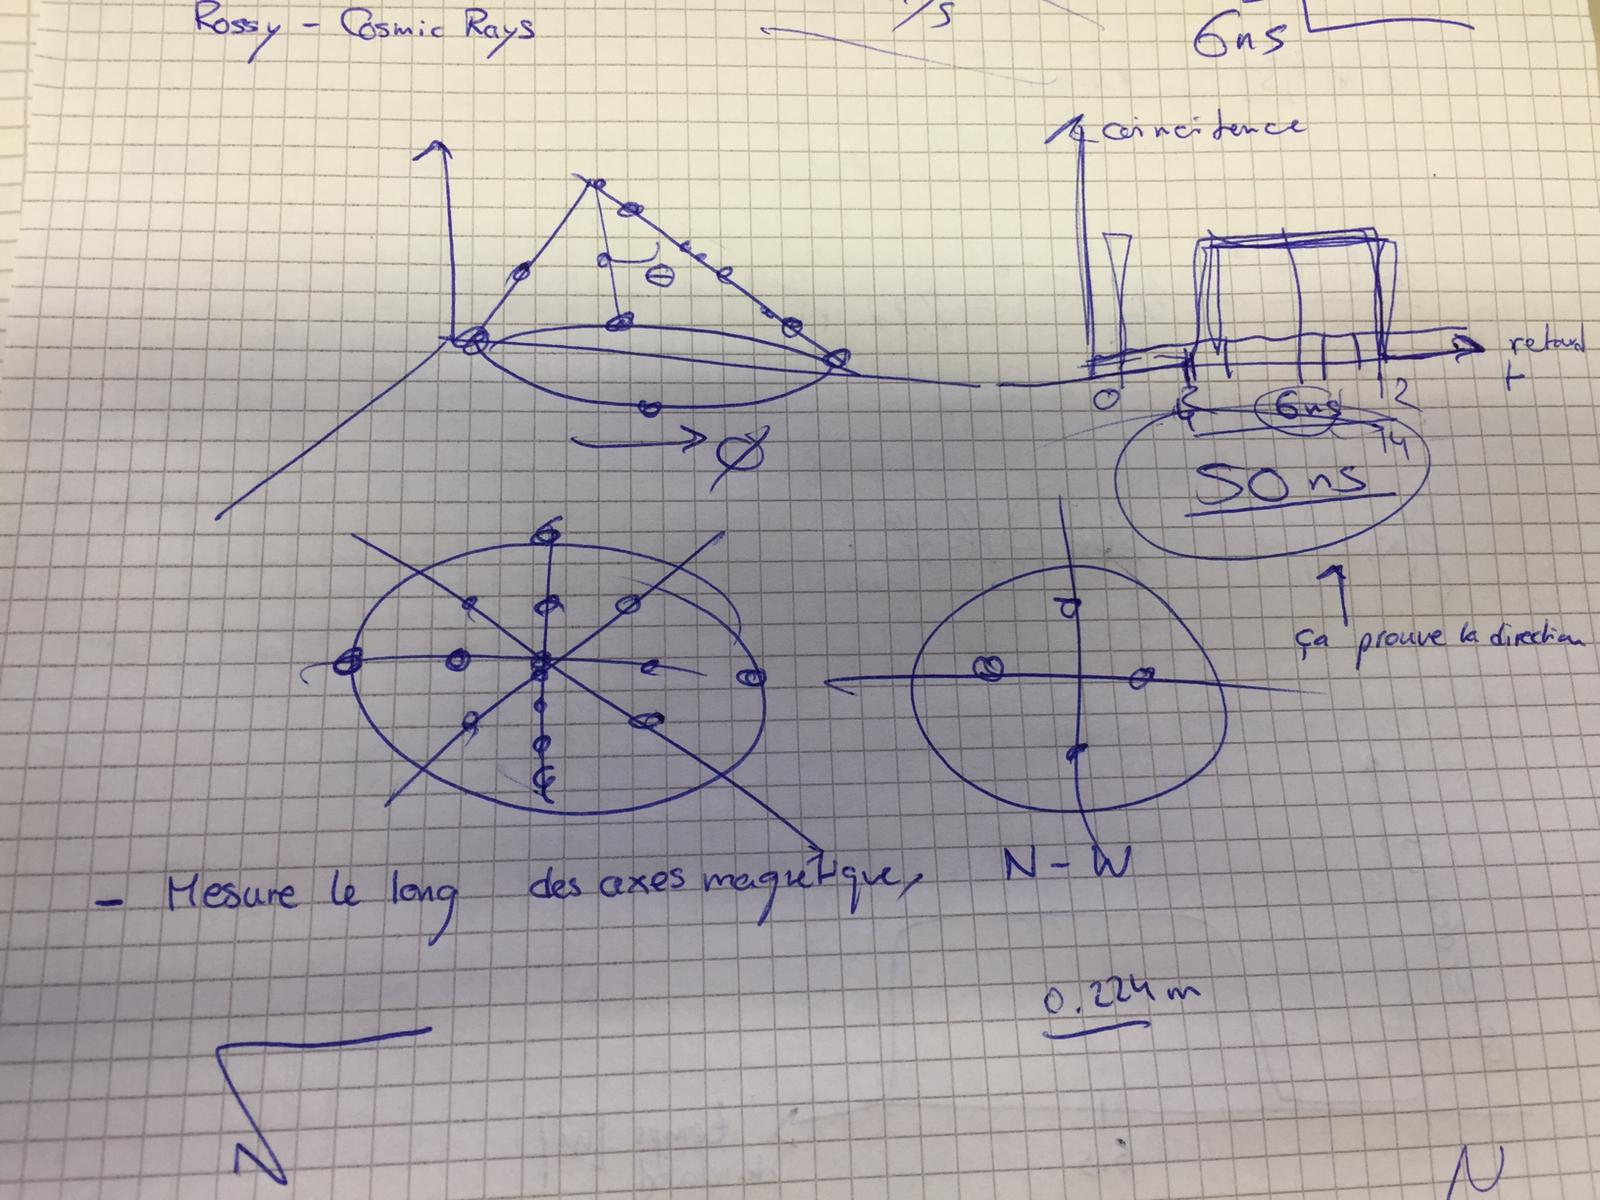 Rossy - Cosmic Rays
/s
6ns
coincitence
θ
retard
t
0
6ns
12
14
50 ns
Ø
ça prouve la direction
- Mesure le long des axes magnétique, N-W
0.224 m
N
N